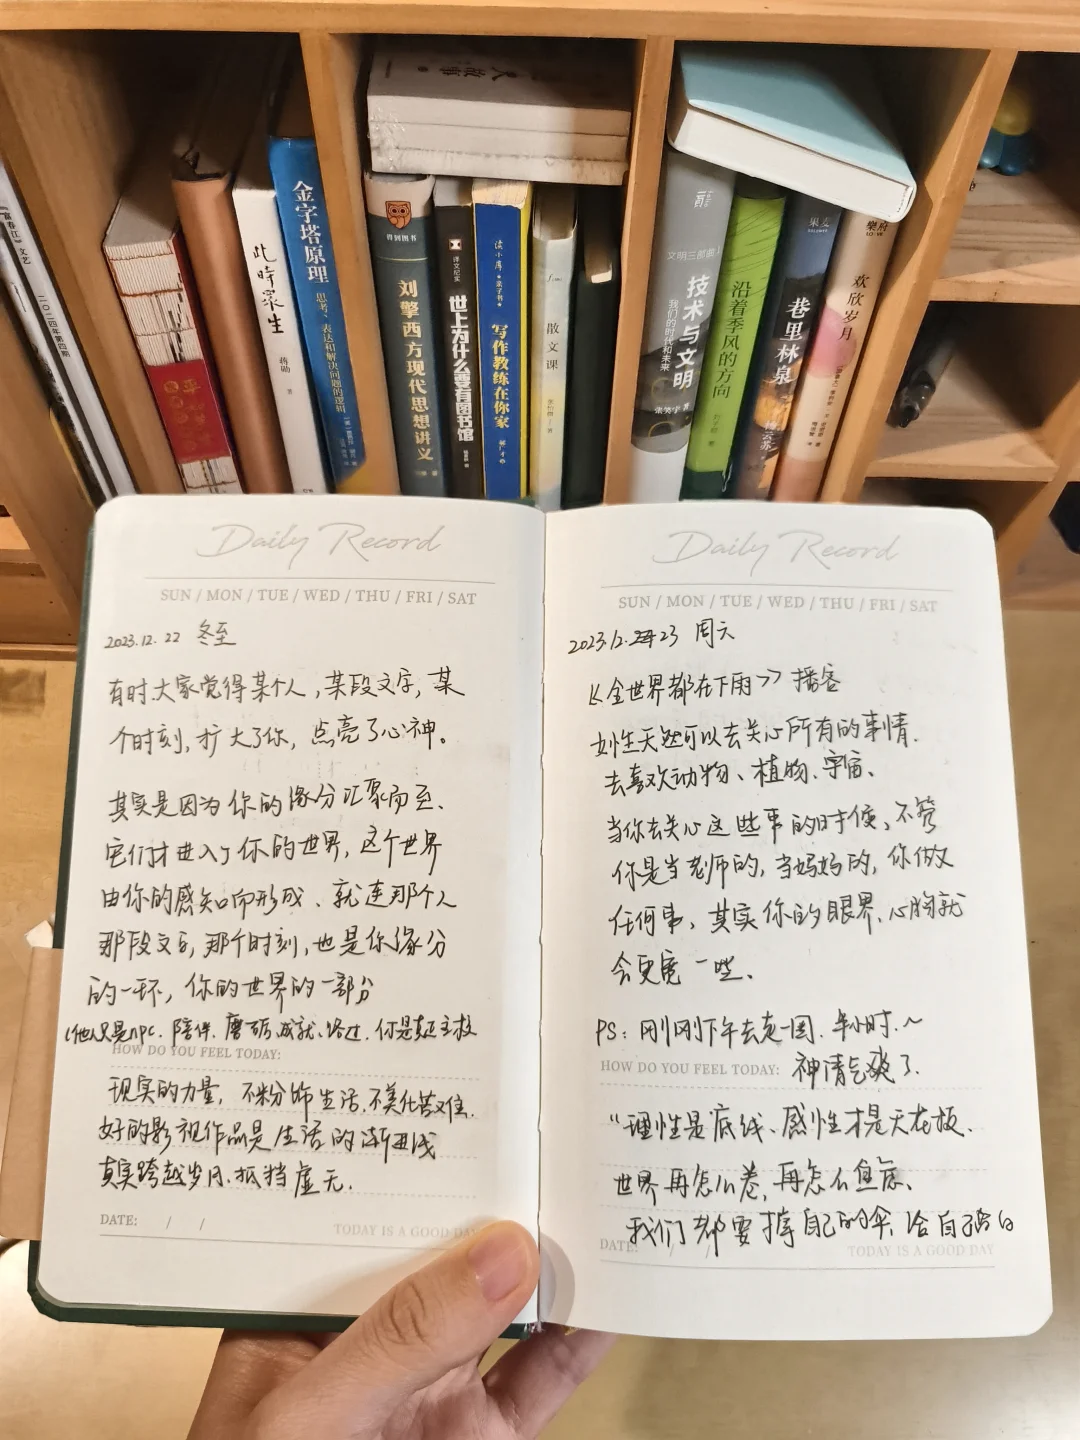 《富春江》文艺
二〇二四年第四期
此時衆生
蒋勋 著
金字塔原理
思考、表达和解决问题的逻辑
得到图书
刘擎西方现代思想讲义
译文纪实
世上为什么要有图书馆
读小库
亲子书
写作教练在你家
散文课
文明三部曲
技术与文明
我们的时代和未来
张笑宇 著
沿着季风的方向
果麦
巷里林泉
樂府
欢欣岁月
Daily Record
SUN / MON / TUE / WED / THU / FRI / SAT
2023.12.22 冬至
有时大家觉得某个人,某段文字,某
个时刻,扩大了你,点亮了心神。
其实是因为你的缘分汇聚而至、
它们才进入了你的世界,这个世界
由你的感知而形成、就连那个人
那段文字,那个时刻,也是你缘分
的一环,你的世界的一部分
(他人只是npc.陪伴.磨砺.成就.路过.你是真正主校
HOW DO YOU FEEL TODAY:
现实的力量,不粉饰生活.不美化苦难.
好的影视作品是生活的渐进线
真实跨越岁月.抵挡虚无.
DATE: / /
TODAY IS A GOOD DAY
Daily Record
SUN / MON / TUE / WED / THU / FRI / SAT
2023.12.23 周六
《全世界都在下雨》播客
女性天然可以去关心所有的事情.
去喜欢动物、植物、宇宙、
当你去关心这些事的时候、不管
你是当老师的,当妈妈的,你做
任何事,其实你的眼界、心胸就
会更宽一些、
PS:刚刚下午去走一圈.半小时.~
HOW DO YOU FEEL TODAY: 神清气爽了.
“理性是底线、感性才是天花板.
世界再怎么卷,再怎么焦虑、
我们都要撑自己的伞,给自己留白
DATE: / /
TODAY IS A GOOD DAY